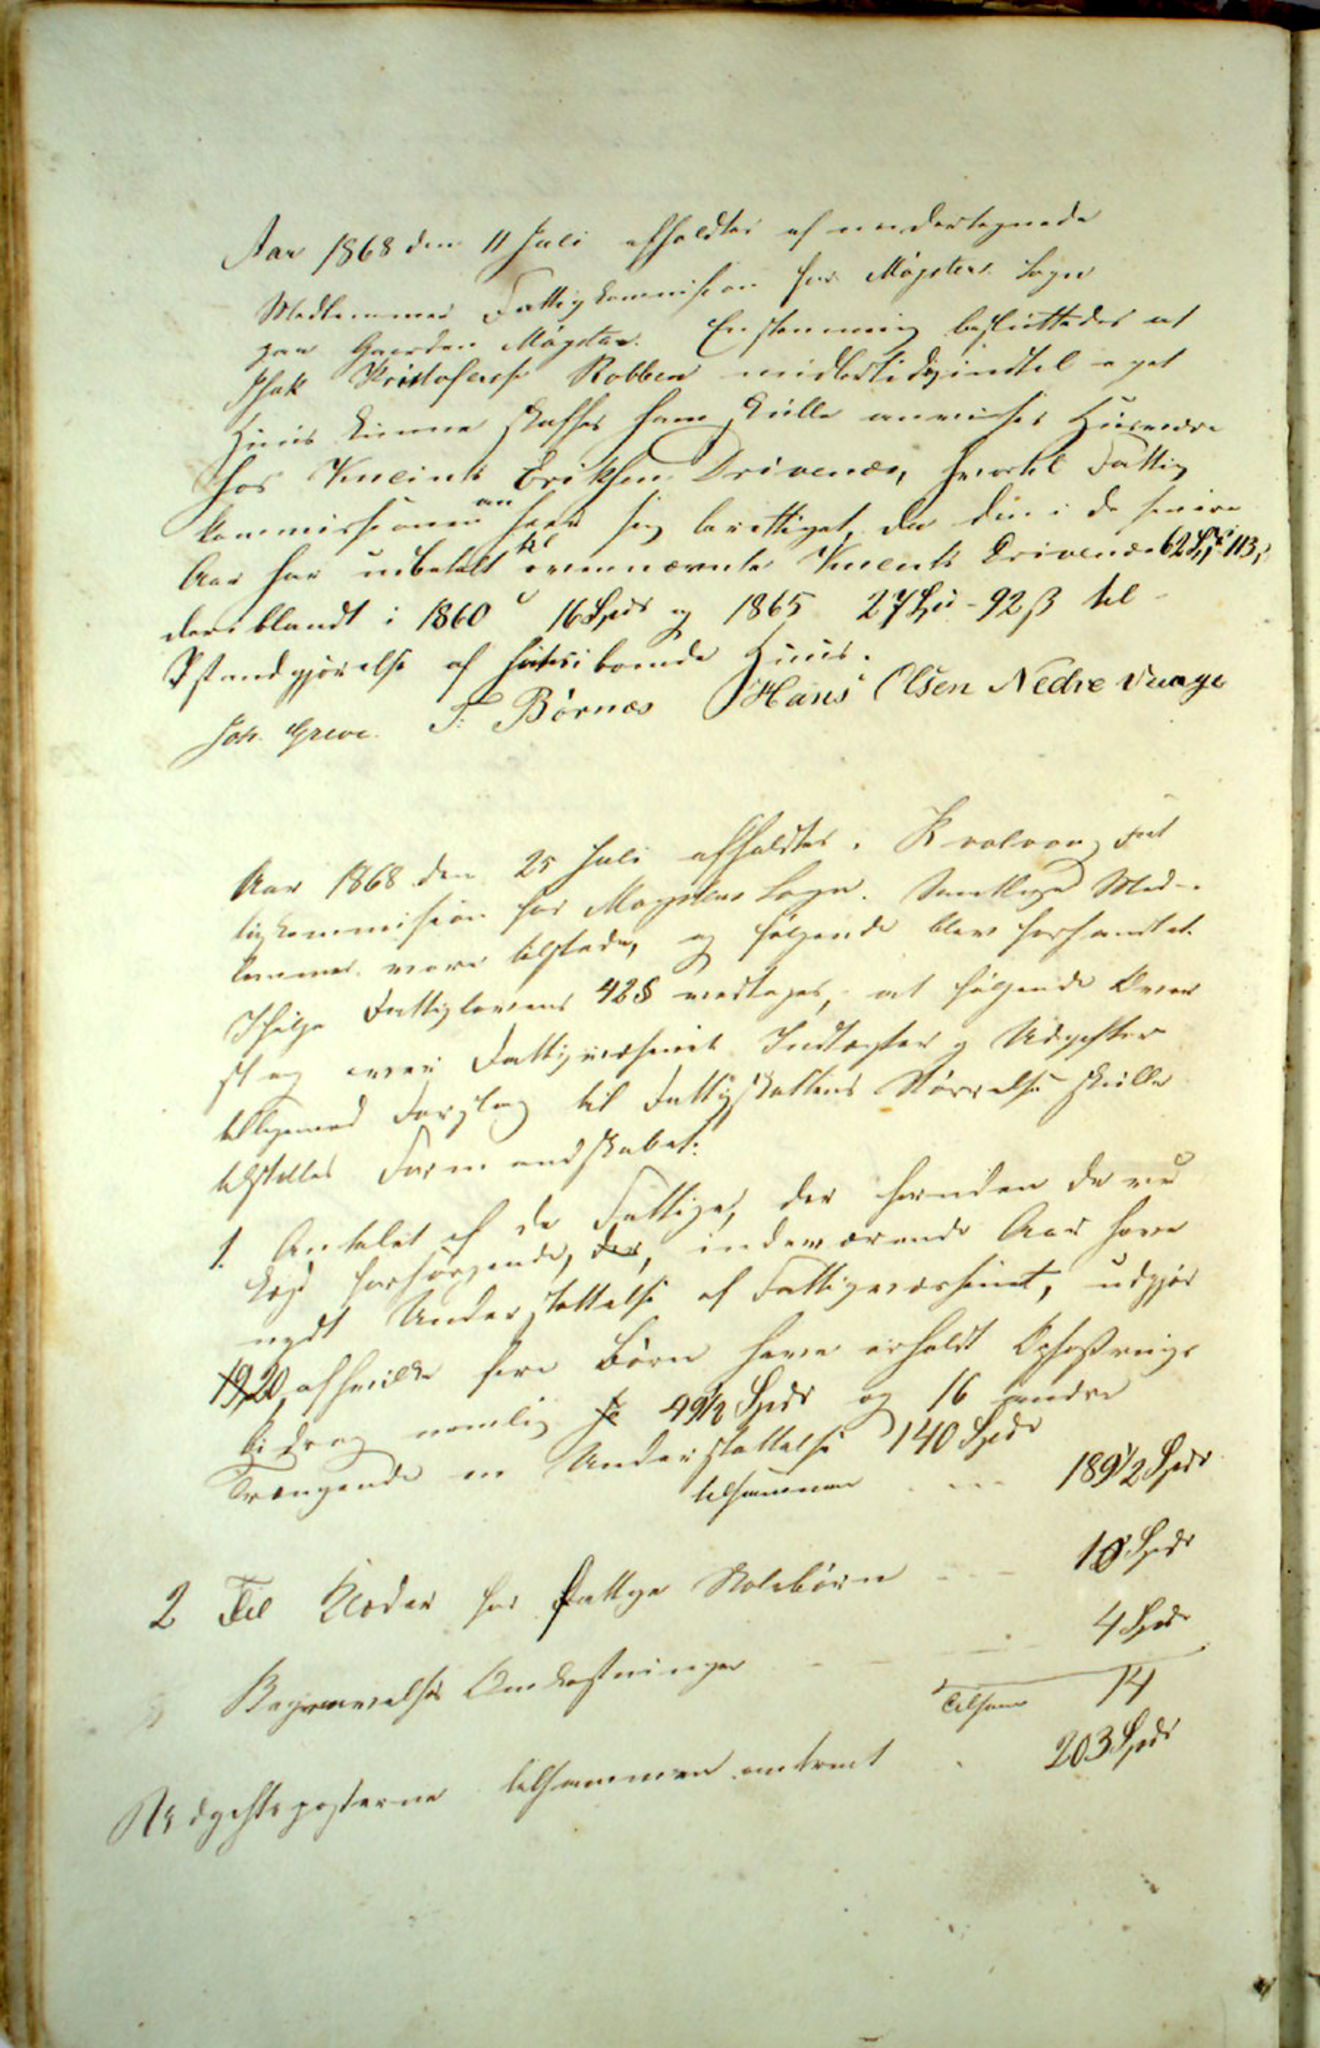 Aar 1868 den 11 Juli afholdtes af undertegnede
Medlemmer Fattigkommission for Møgsters Sogn
paa Gaarden Møgster. Enstemmig besluttedes at
Isak Kristofersen Robben midlertidig indtil eget
Huus kunne skaffes ham skulde anvises Huusvære
hos Knut Eriksen Drivenæs, hvortil Fattig
kommissionen anseer sig berettiget, da den i de senere
Aar har udbetalt til ovennævnte Drivenæs 62 Spd 113 ß,
deriblandt i 1860 16 Spdr og 1865 27 Spd - 92 ß til
Istandgjørelse af iboende Huus.
Joh. Greve. F. Børnes Hans Olsen Nedre Vaage
Aar 1868 den 25 Juli afholdtes i Kvalvaag Fat
tigkommission for Møgsters Sogn. Samtlige Med-
lemmer vare tilstede, og følgende blev forhandlet.
Ifølge Fattiglovens 42 § vedtoges, at følgende Over
slag over Fattigvæsenets Indtægter og Udgifter
tilligemed Forslag til Fattigskattens Størrelse skulle
tilstilles Formandskabet:
1. Antalet af de Fattige, der foruden de ved
Lægd forsørgende, der, indeværende Aar have
nydt Understøttelse af Fattigvæsenet, udgjør
19, 20, af hvilke fire Børn have erholdt Opfostrings
bidrag nemlig 49½ Spdr og 16 andre
Trængende en Understøttelse 140 Spdr
tilsammen . . . 189½ Spdr
2 Til Klæder for Fattige Skolebørn - - - 10 Spdr
Begravelses Omkostninger - - - 4 Spdr
Tilsam 14
Udgiftsposterne tilsammen omtrent . 203 Spdr